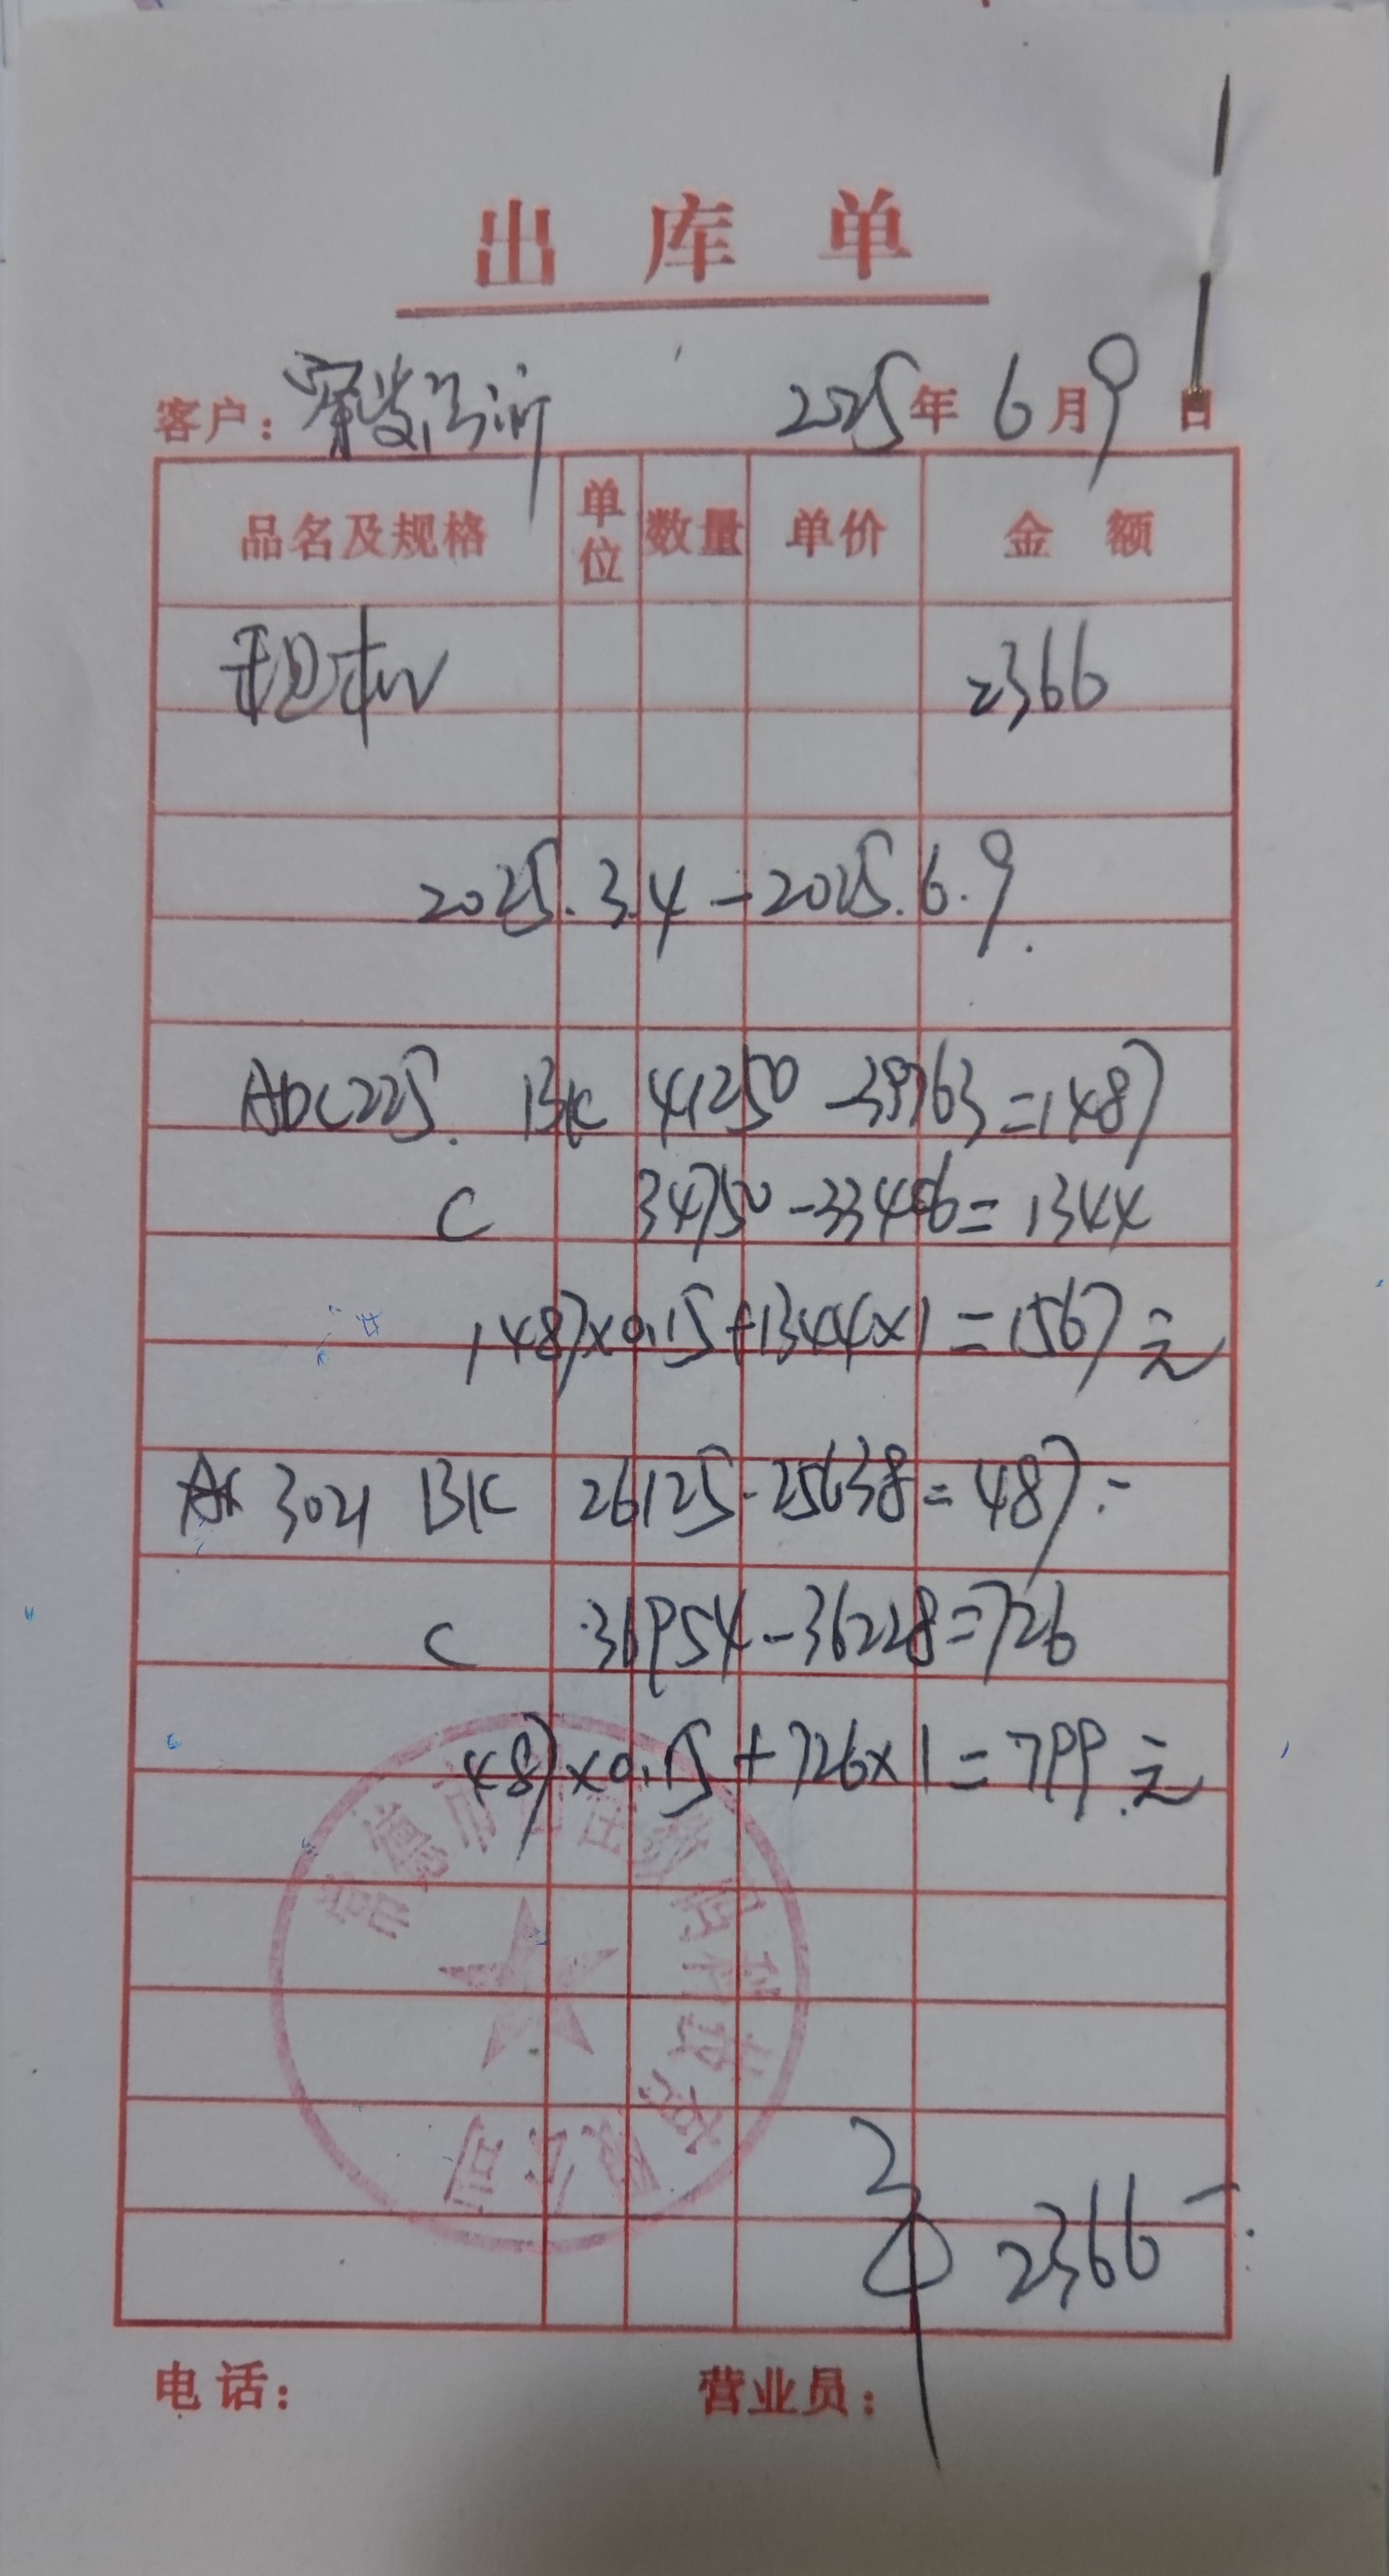 出库单
客户： 2025年6月9日
品名及规格 单位 数量 单价 金额
租机 2366
2025.3.4-2025.6.9.
ADC225. BK 41250-39763=1487
C 34750-33406=1344
1487×0.15+1344×1=1567元
3021 BK 26125-25638=487.-
C 36954-36228=726
487×0.15+726×1=799.元
2366
电话： 营业员：